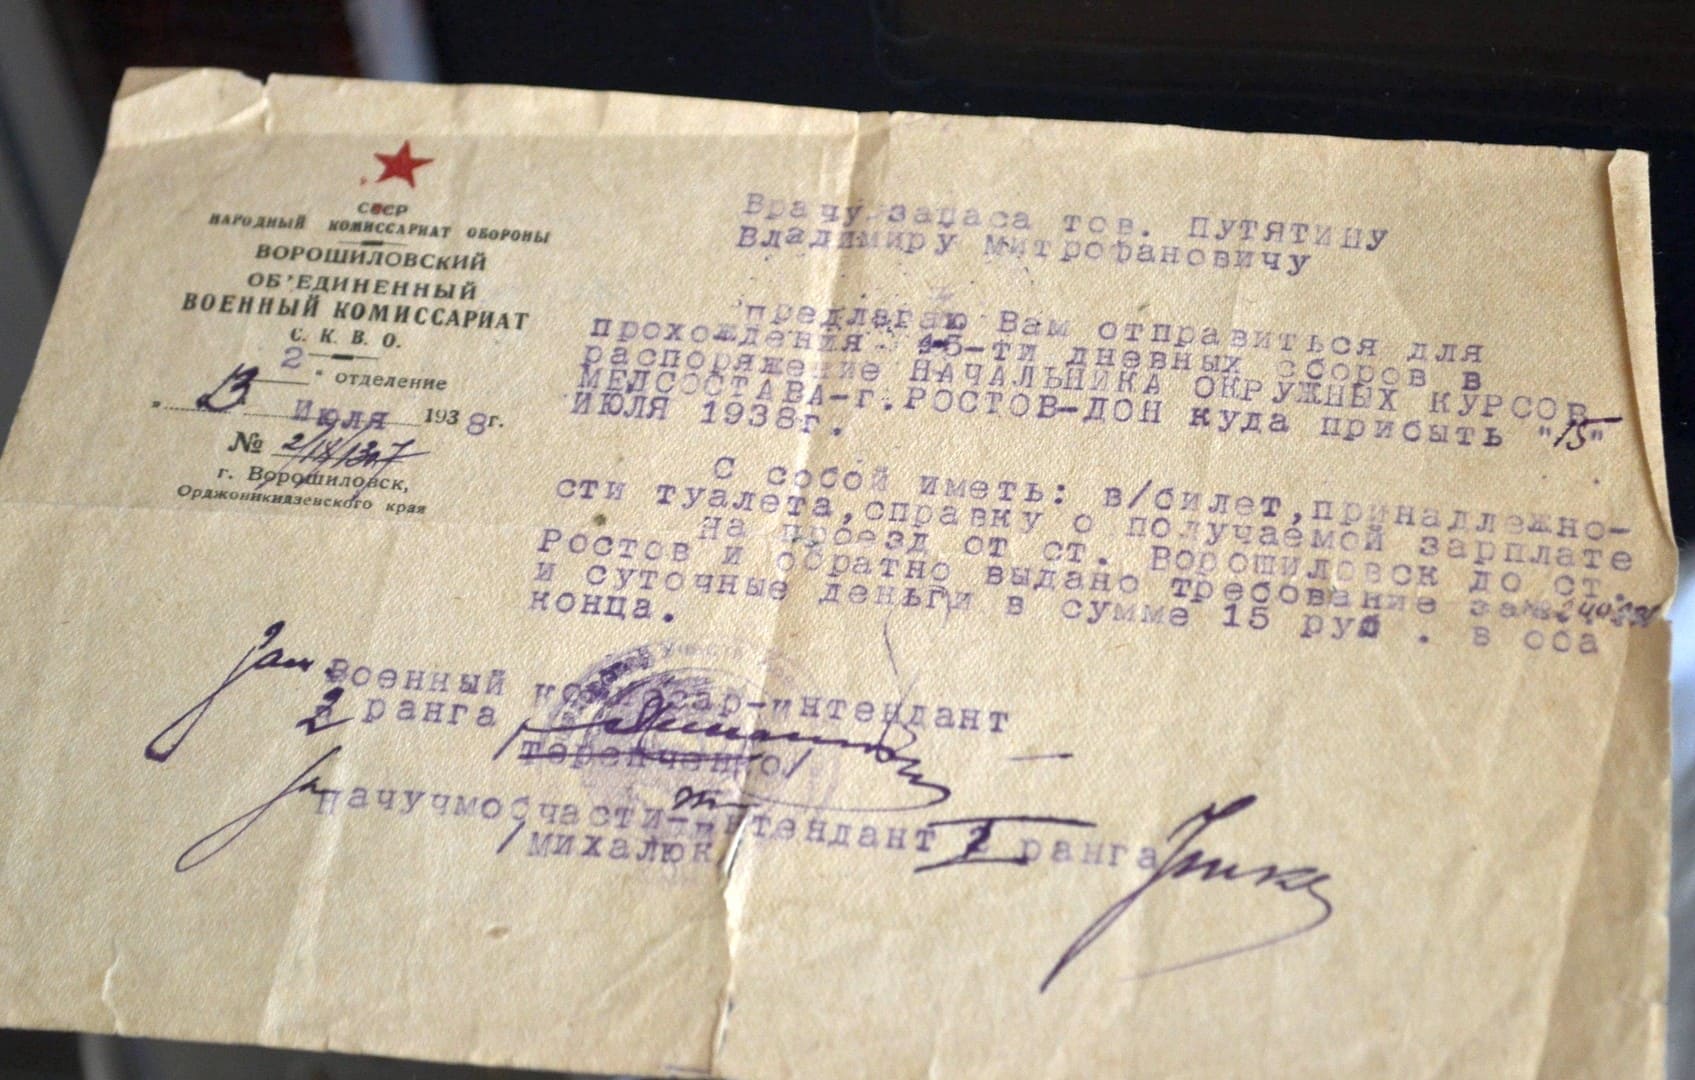 СССР
НАРОДНЫЙ КОМИССАРИАТ ОБОРОНЫ
ВОРОШИЛОВСКИЙ
ОБ'ЕДИНЕННЫЙ
ВОЕННЫЙ КОМИССАРИАТ
С. К. В. О.
2
" отделение
" 13 Июля 1938г.
№
г. Ворошиловск,
Орджоникидзевского края
Врачу запаса тов. ПУТЯТИНУ
Владимиру Митрофановичу
предлагаю Вам отправиться для
прохождения 45-ти дневных сборов в
распоряжение НАЧАЛЬНИКА ОКРУЖНЫХ КУРСОВ
МЕДСОСТАВА-г.РОСТОВ-ДОН куда прибыть "15"
ИЮЛЯ 1938г.
С собой иметь: в/билет,принадлежно-
сти туалета,справку о получаемой зарплате
На проезд от ст. Ворошиловск до ст.
Ростов и обратно выдано требование за
и суточные деньги в сумме 15 руб . в оба
конца.
Военный комиссар-интендант
2 ранга
/теренченко/
начучмобчасти-интендант I ранга
/михалюк